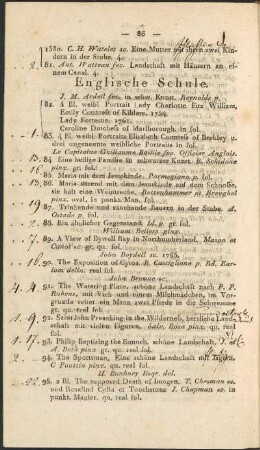 — 86 —
1380. C. H. Watelet sc. Eine Mutter mit ihren zwei Kindern in der Stube. 4.
81. Ant. Watteau fec. Landschaft mit Häusern an einem Canal. 4.
Englische Schule.
J. M. Ardell fec. in schw. Kunst. Reynolds p.
82. 4 El. weibl Portrait Lady Charlotte Fitz William,
Emily Countess of Kildare. 1754.
Lady Fortescue. 1757.
Caroline Dutchess of Marlborough. in fol.
83. 4 El. weibl. Portraits Elizabeth Countess of Berkley u.
drei ungenannte weibliche Portraits in fol.
Le Capitaine Guillaume Baillie fec. Officier Anglois.
84. Eine heilige Familie in schwarzer Kunst. B. Schidone
pinx. gr. fol.
85. Maria mit dem Jesuskinde. Parmegiano p. fol.
86. Maria sitzend mit dem Jesuskinde auf dem Schoosse,
sie hält eine Weintraube. Rottenhammer et Breughel
pinx. oval. in punkt. Man. fol.
87. Trinkende und rauchende Bauern in der Stube. A.
Ostade p. fol.
88. Ein ähnlicher Gegenstand. Id. p. gr. fol.
William Bellers pinx.
89. A View of Bywell Bay in Northumberland. Mason et
Canot sc. gr. qu. fol.
John Boydell sc. 1765.
90. The Exposition of Cyrus. B. Castiglione p. Rd. Earlom delin. real fol.
John Browne sc.
91. The Watering Place, schöne Landschaft nach P. P.
Rubens, mit Vieh und einem Milchmädchen, im Vorgrunde reitet ein Mann zwei Pferde in die Schwemme
gr. qu. real fol.
92. Saint John Preaching in the Wilderness, herrliche Landschaft mit vielen Figuren. Salv. Rosa pinx. qu. real
fol.
93. Philip Baptizing the Eunuch, schöne Landschaft.
A. Both pinx gr. qu. real fol.
94. The Sportsman, Eine schöne Landschaft mit Jägern.
G Poussin pinx. qu. real fol.
H. Bunbury Esqr. del.
95. 2 Bl. The supposed Death of Imogen. T. Cheesman sc.
und Rosalind Celia et Touchstone J. Chapman sc. in
punkt. Manier. qu. real fol.